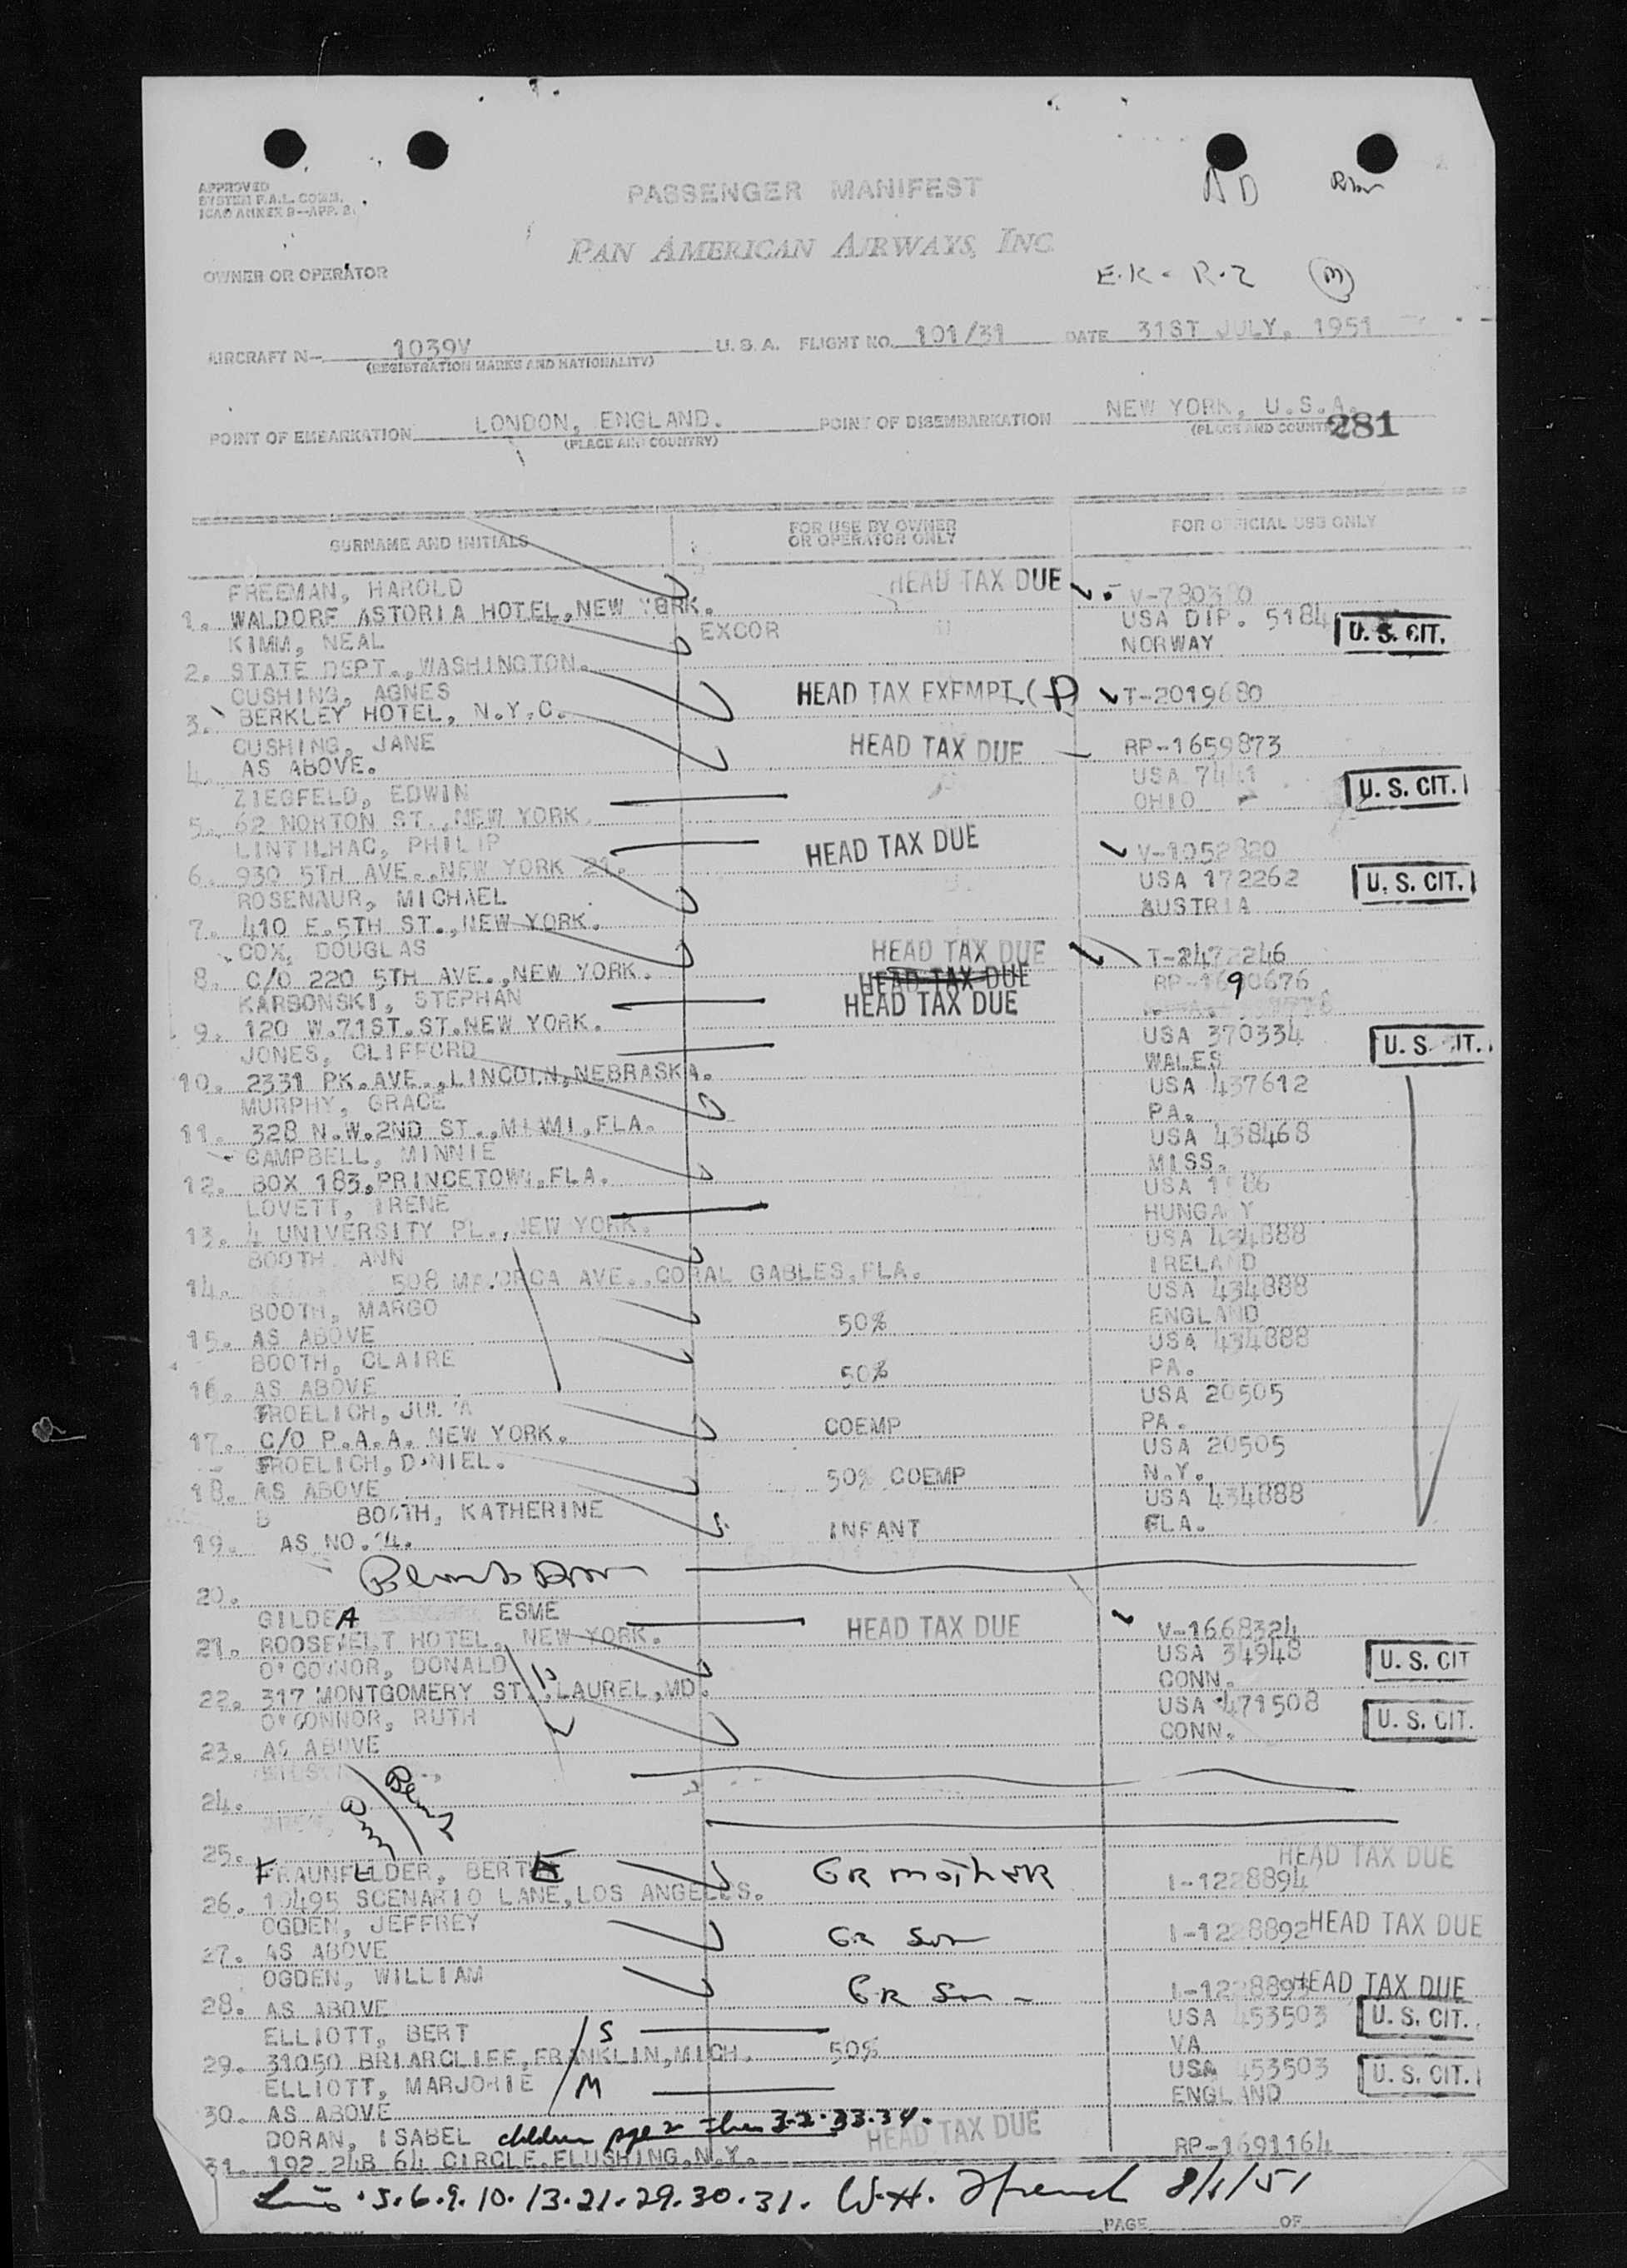 APPROVED
SYSTEM F.A.L. COMM.
ICAO ANNEX 9—APP. 3.
PASSENGER MANIFEST
AD
PAN AMERICAN AIRWAYS, INC.
OWNER OR OPERATOR
E.K - R-Z (M)
AIRCRAFT N- 1039V U.S.A. FLIGHT NO. 101/31 DATE 31ST JULY, 1951
(REGISTRATION MARKS AND NATIONALITY)
POINT OF EMBARKATION LONDON, ENGLAND. POINT OF DISEMBARKATION NEW YORK, U.S.A.
(PLACE AND COUNTRY) (PLACE AND COUNTRY) 281
SURNAME AND INITIALS FOR USE BY OWNER OR OPERATOR ONLY FOR OFFICIAL USE ONLY
FREEMAN, HAROLD HEAD TAX DUE
1. WALDORF ASTORIA HOTEL, NEW YORK. USA DIP. 5184
KIMM, NEAL EXCOR NORWAY U. S. CIT.
2. STATE DEPT., WASHINGTON.
CUSHING, AGNES HEAD TAX EXEMPT. (P) T-2019680
3. BERKLEY HOTEL, N.Y.C.
CUSHING, JANE HEAD TAX DUE RP-1659873
4. AS ABOVE. USA 7441
ZIEGFELD, EDWIN OHIO U. S. CIT.
5. 62 NORTON ST., NEW YORK.
LINTILHAC, PHILIP HEAD TAX DUE V-1052820
6. 930 5TH AVE., NEW YORK 21. USA 172262 U. S. CIT.
ROSENAUR, MICHAEL AUSTRIA
7. 410 E. 5TH ST., NEW YORK.
COX, DOUGLAS HEAD TAX DUE T-2472246
8. C/O 220 5TH AVE., NEW YORK. HEAD TAX DUE RP-1690676
KARBONSKI, STEPHAN HEAD TAX DUE
9. 120 W.71ST.ST.NEW YORK. USA 370334
JONES, CLIFFORD WALES U. S. CIT.
10. 2331 PK.AVE., LINCOLN, NEBRASKA. USA 437612
MURPHY, GRACE PA.
11. 328 N.W.2ND ST., MIAMI, FLA. USA 438468
CAMPBELL, MINNIE MISS.
12. BOX 183, PRINCETOWN, FLA. USA
LOVETT, IRENE HUNGARY
13. 4 UNIVERSITY PL., NEW YORK. USA 434888
BOOTH ANN IRELAND
14. 508 MAJORCA AVE., CORAL GABLES, FLA. USA 434888
BOOTH, MARGO 50% ENGLAND
15. AS ABOVE USA 434888
BOOTH, CLAIRE 50% PA.
16. AS ABOVE USA 20505
FROELICH, JULIA COEMP PA.
17. C/O P.A.A. NEW YORK. USA 20505
FROELICH, DANIEL. 50% COEMP N.Y.
18. AS ABOVE USA 434888
BOOTH, KATHERINE INFANT FLA.
19. AS NO.14.
20.
GILDEA ESME HEAD TAX DUE V-1668324
21. ROOSEVELT HOTEL, NEW YORK. USA 34948
O'CONNOR, DONALD CONN. U. S. CIT
22. 317 MONTGOMERY ST., LAUREL, MD. USA 471508
O'CONNOR, RUTH CONN. U. S. CIT.
23. AS ABOVE
24.
25. HEAD TAX DUE
FRAUNFELDER, BERTHE GR mother I-1228894
26. 10495 SCENARIO LANE, LOS ANGELES.
OGDEN, JEFFREY GR Son I-1228892 HEAD TAX DUE
27. AS ABOVE
OGDEN, WILLIAM GR Son HEAD TAX DUE
28. AS ABOVE USA 453503 U. S. CIT.
ELLIOTT, BERT S 50% VA
29. 31050 BRIARCLIFF, FRANKLIN, MICH. USA 453503 U. S. CIT.
ELLIOTT, MARJORIE M ENGLAND
30. AS ABOVE
DORAN, ISABEL children page 2 lines 32.33.34. HEAD TAX DUE RP-1691164
31. 192 24B 64 CIRCLE, FLUSHING, N.Y.
Lines .5.6.9.10.13.21.29.30.31. W.H. French 8/1/51
PAGE OF